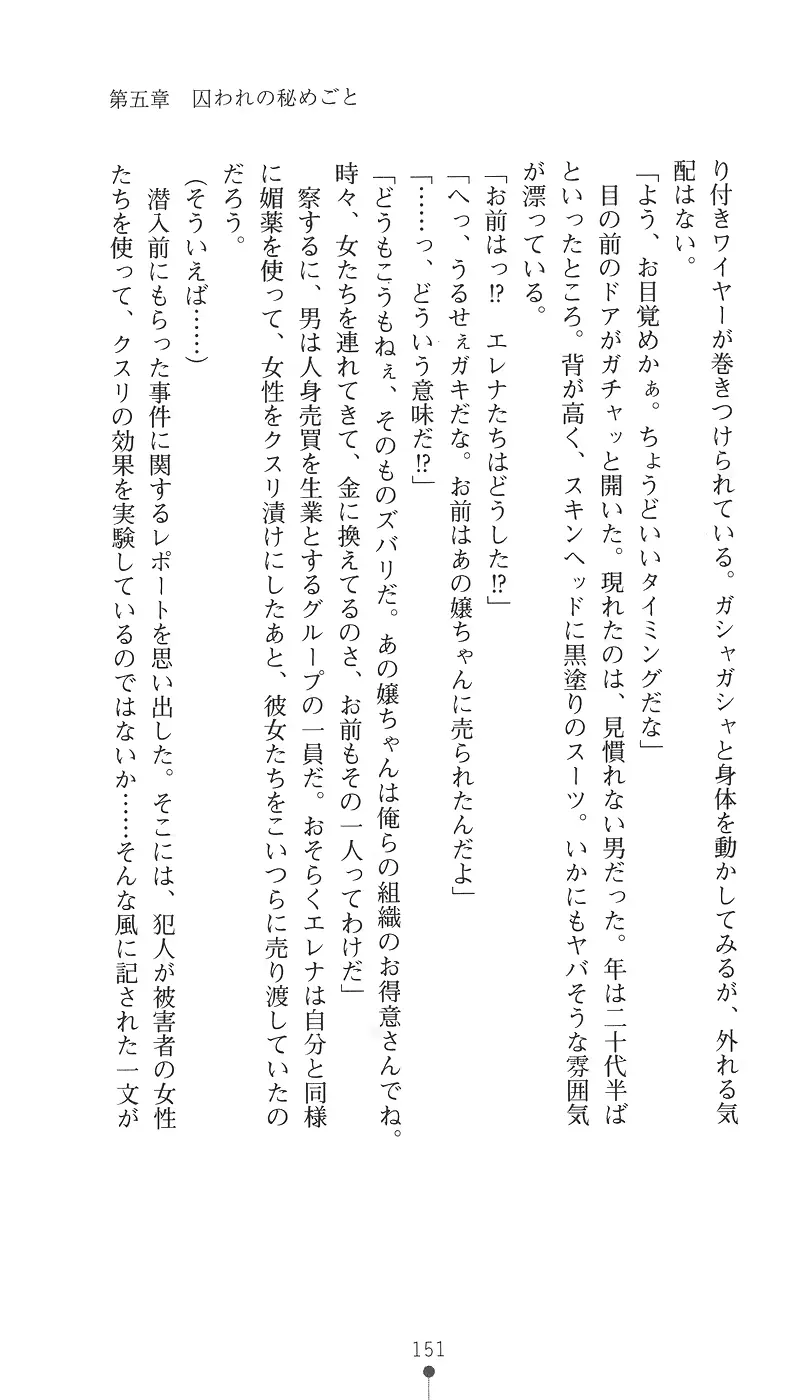 第五章　囚われの秘めごと
り付きワイヤーが巻きつけられている。ガシャガシャと身体を動かしてみるが、外れる気
配はない。
「よう、お目覚めかぁ。ちょうどいいタイミングだな」
　目の前のドアがガチャッと開いた。現れたのは、見慣れない男だった。年は二十代半ば
といったところ。背が高く、スキンヘッドに黒塗りのスーツ。いかにもヤバそうな雰囲気
が漂っている。
「お前はっ!?　エレナたちはどうした!?」
「へっ、うるせぇガキだな。お前はあの嬢ちゃんに売られたんだよ」
「……っ、どういう意味だ!?」
「どうもこうもねぇ、そのものズバリだ。あの嬢ちゃんは俺らの組織のお得意さんでね。
時々、女たちを連れてきて、金に換えてるのさ、お前もその一人ってわけだ」
　察するに、男は人身売買を生業とするグループの一員だ。おそらくエレナは自分と同様
に媚薬を使って、女性をクスリ漬けにしたあと、彼女たちをこいつらに売り渡していたの
だろう。
（そういえば……）
　潜入前にもらった事件に関するレポートを思い出した。そこには、犯人が被害者の女性
たちを使って、クスリの効果を実験しているのではないか……そんな風に記された一文が
151